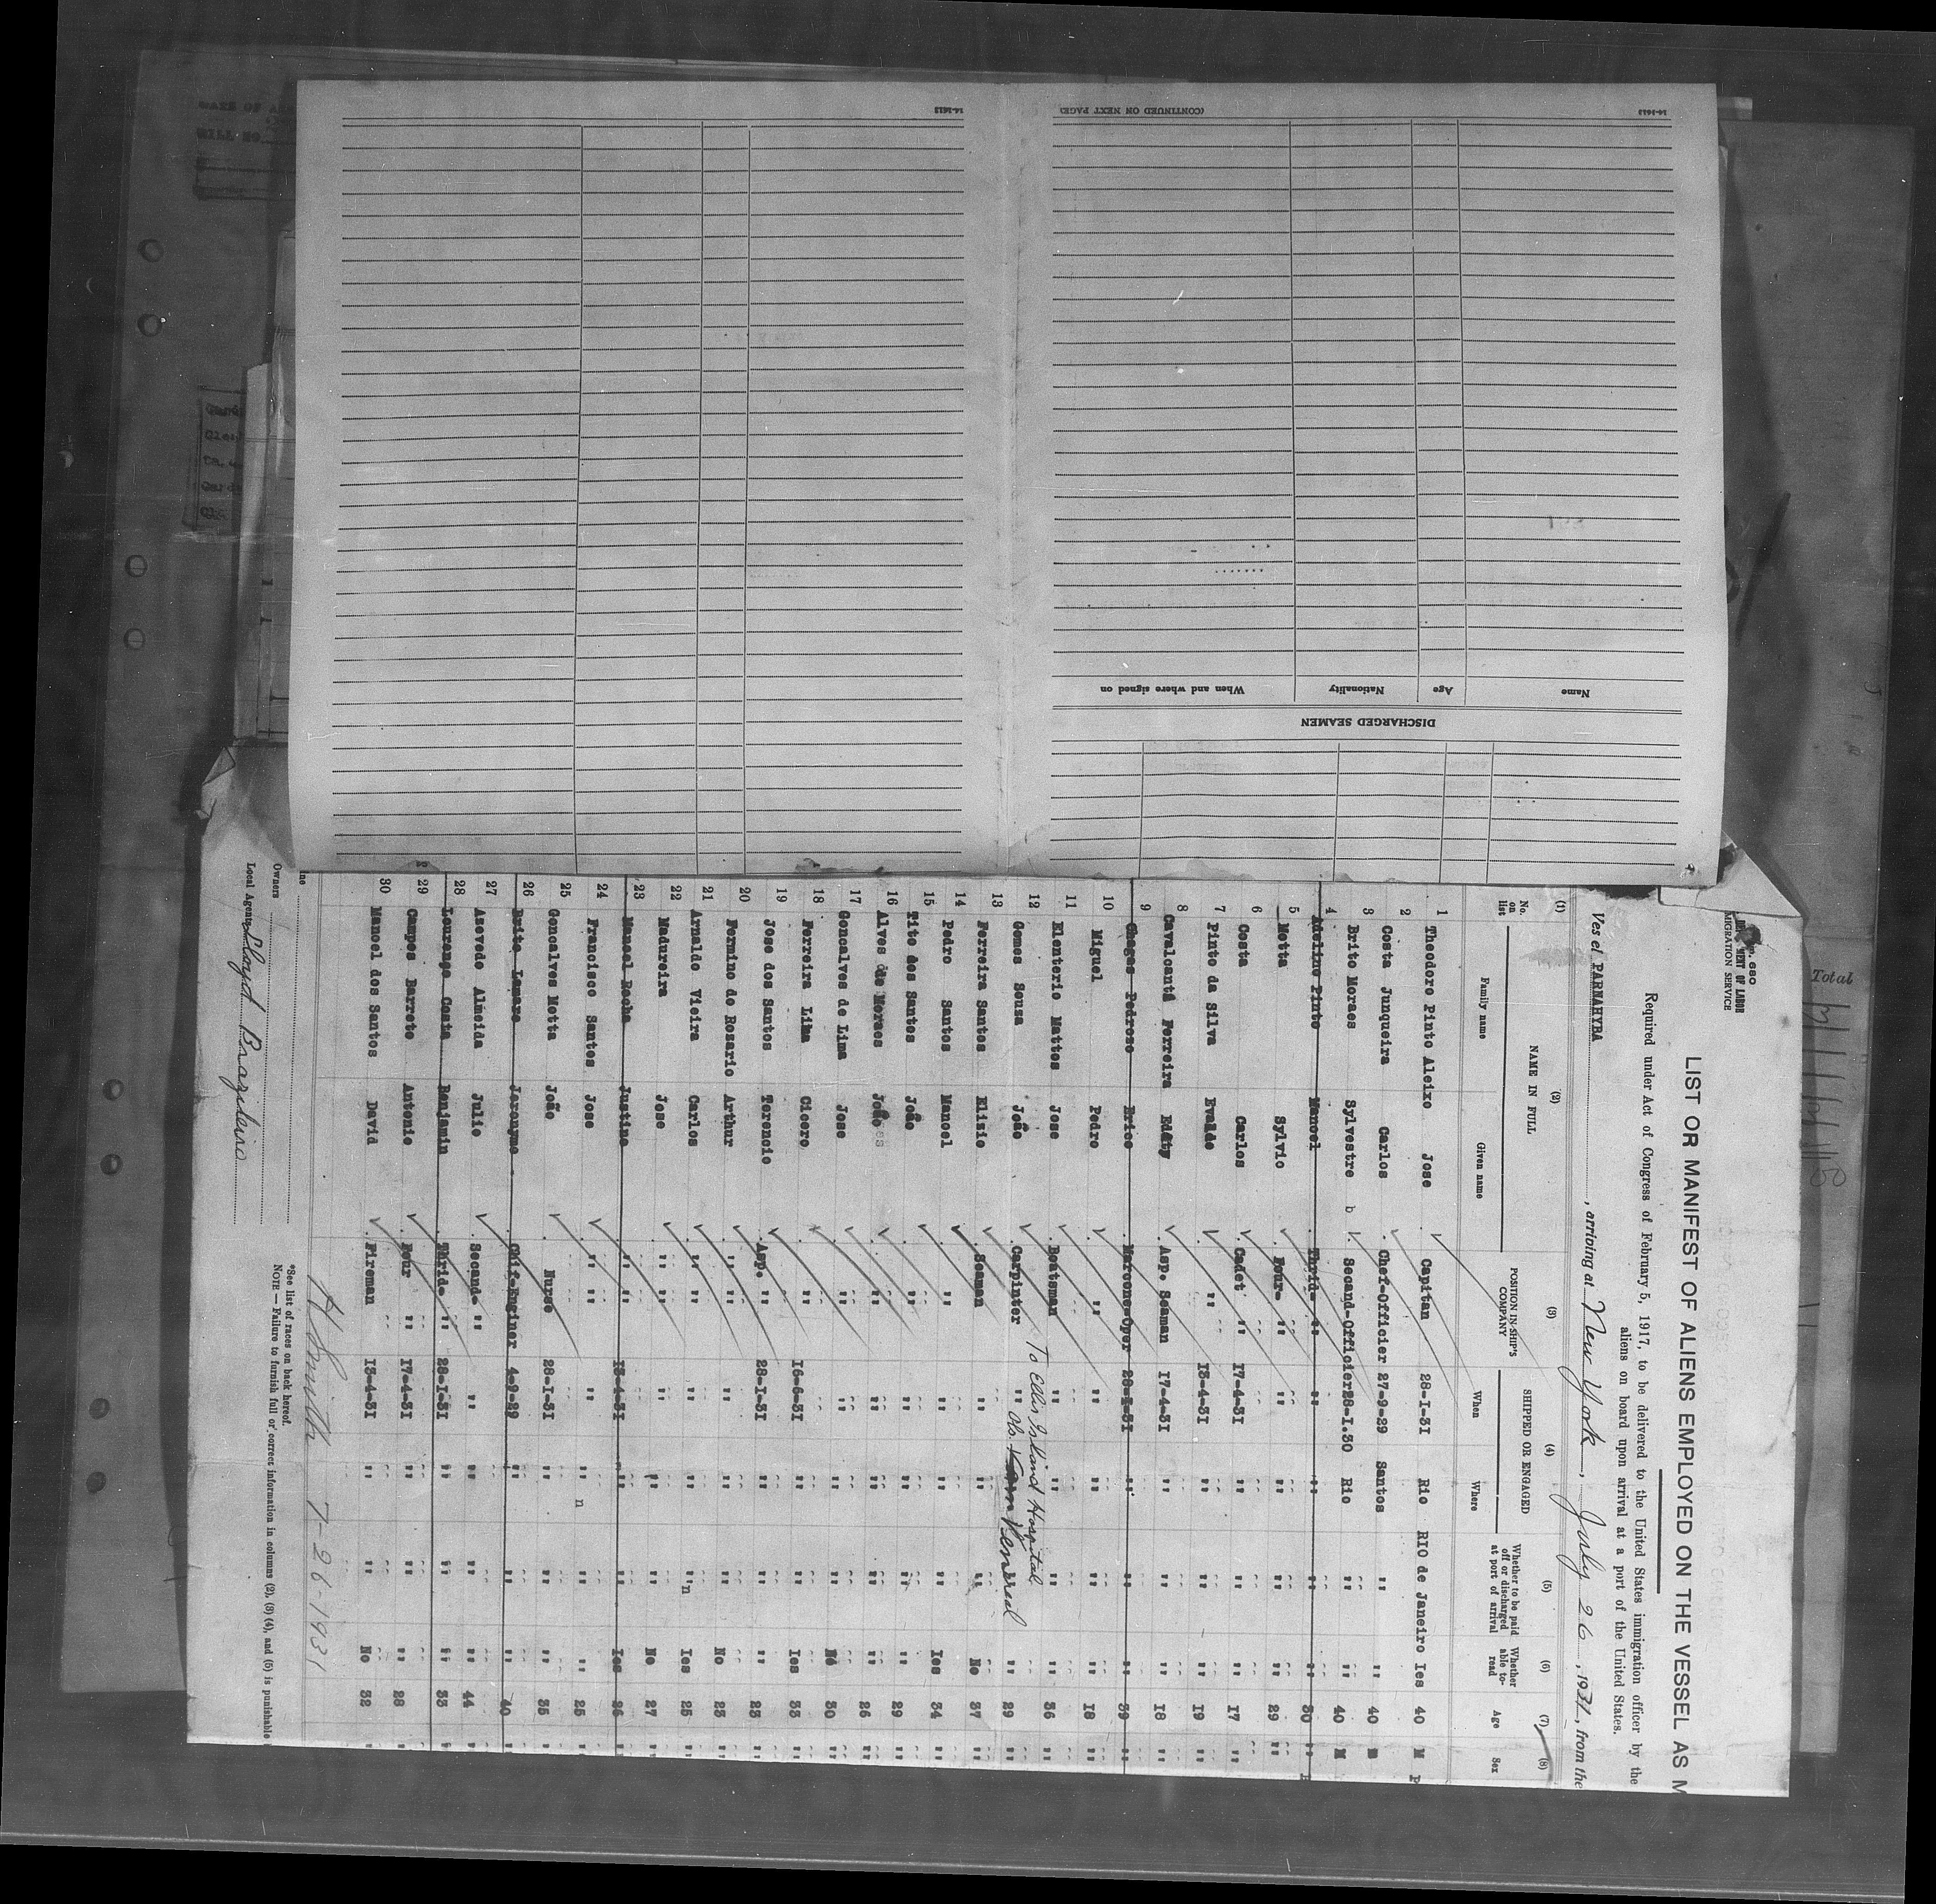 DISCHARGED SEAMEN
Name Age Nationality When and where signed on
14-1613 (CONTINUED ON NEXT PAGE)
14-1613
Total
IMMIGRATION SERVICE
LIST OR MANIFEST OF ALIENS EMPLOYED ON THE VESSEL AS M
Required under Act of Congress of February 5, 1917, to be delivered to the United States immigration officer by the
aliens on board upon arrival at a port of the United States.
Ves el PARNAHYBA, arriving at New York, July 26, 1931, from the
(1) (2) (3) (4) (5) (6) (7) (8)
No. on list NAME IN FULL POSITION IN SHIP'S COMPANY SHIPPED OR ENGAGED Whether to be paid off or discharged at port of arrival Whether able to read Age Sex
Family name Given name When Where
1 Theodoro Pinto Aleixo Jose Capitan 28-I-3I Rio RIO de Janeiro Ies 40 M
2 Costa Junqueira Carlos Chef-Officier 27-9-29 Santos " " 40 m
3 Brito Moraes Sylvestre b Secand-Officier 28-I.30 Rio " " 40 M
4 Adelino Pinto Manoel Thrid- " " " " " 30 "
5 Motta Sylvio Four- " " " " " 29 "
6 Costa Carlos Cadet " 17-4-3I " " " 17 "
7 Pinto da Silva Evalde " 13-4-3I " " " 19 "
8 Cavalcantá Ferreira Edáty Asp. Seaman 17-4-3I " " " 18 "
9 Chagas Pedroso Erico Marcone-Oper 28-I-3I " " " 39 "
10 Miguel Pedro " " " " " 18 "
11 Elenterio Mattos Jose Boatsman " " " " 36 "
To Ellis Island Hospital
12 Gomes Souza João Carpinter " " 29 "
13 Ferreira Santos Elizio Seaman " " " No 37 "
14 Pedro Santos Manoel " " " " Ies 34 "
15 Tito dos Santos João " " " " " 29 "
16 Alves de Moraes João " " " " " 26 "
17 Goncalves de Lima Jose " " " " No 30 "
18 Ferreira Lima Cicero " 16-6-3I " " Ies 33 "
19 Jose dos Santos Terencio Asp. " 28-I-3I " " " 23 "
20 Fermino do Rosario Arthur " " " " No 23 "
21 Arnaldo Vieira Carlos " " " "n Ies 25 "
22 Madureira Jose " " " " No 27 "
23 Manoel Rocha Justino " 13-4-3I " " Ies 26 "
24 Francisco Santos Jose " " " n " 25 "
25 Goncalves Motta João Nurse 28-I-3I " " " 35 "
26 Brito Lamare Jeronymo Chif-Enginer 4-9-29 " " " 40 "
27 Azevedo Almeida Julio Secand- " " " " " 44 "
28 Lourença Costa Benjamin Thrid- " 28-I-3I " " " 33 "
29 Campos Barreto Antonio Four " 17-4-3I " " " 28 "
30 Manoel dos Santos David Fireman 13-4-3I " " No 32 "
H Smith 7-26-1931
*See list of races on back hereof.
NOTE — Failure to furnish full or correct information in columns (2), (3) (4), and (5) is punishable
Owners
Local Agents Lloyd Brazileiro